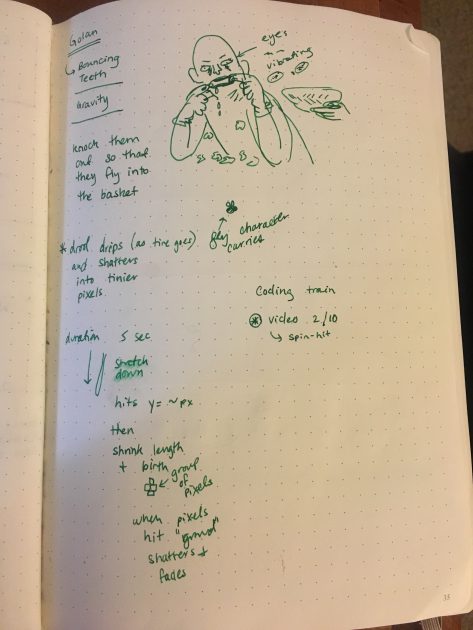 Golan
↳ Bouncing
Teeth
Gravity
eyes
vibrating
knock them
out so that
they fly into
the basket
* drool drips (as time goes)
and shatters
into tinier
pixels.
character
carries
Coding train
* video 2/10
↳ spin-hit
duration 5 sec
stretch
down
hits y = ~px
then
shrink length
+ birth
group
of
pixels
when pixels
hit "ground"
shatters +
fades
35